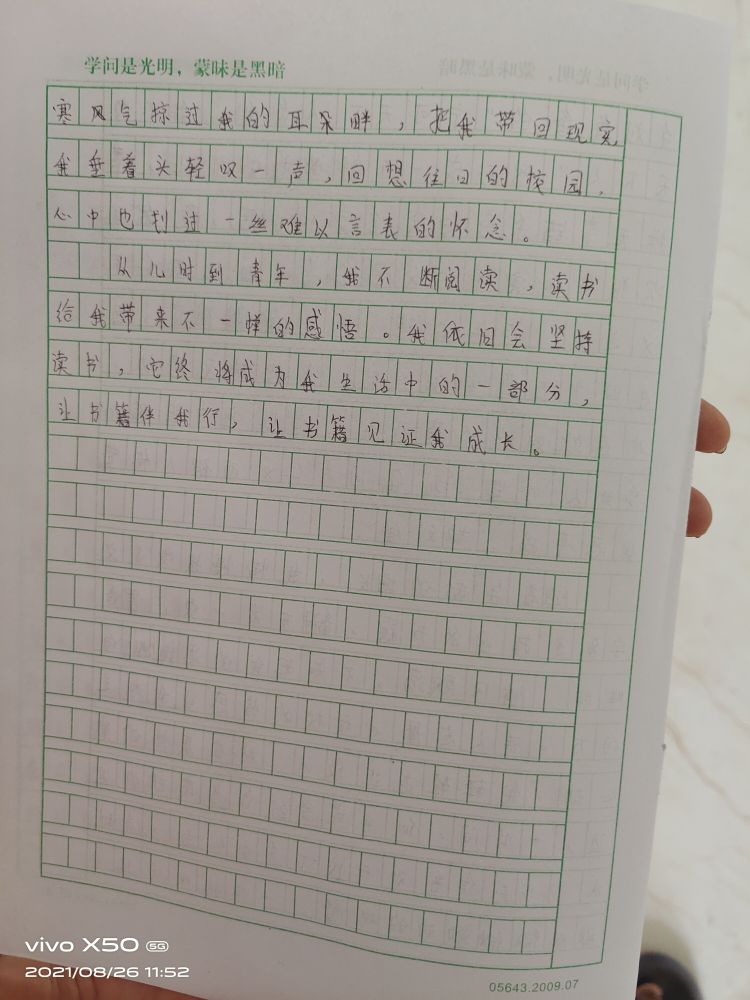 学问是光明，蒙昧是黑暗
寒风气掠过我的耳朵畔，把我带回现实
我垂着头轻叹一声，回想往日的校园，
心中也划过一丝难以言表的怀念。
从儿时到青年，我不断阅读，读书
给我带来不一样的感悟。我依旧会坚持
读书，它终将成为我生活中的一部分，
让书籍伴我行，让书籍见证我成长。
vivo X50 5G
2021/08/26 11:52
05643.2009.07